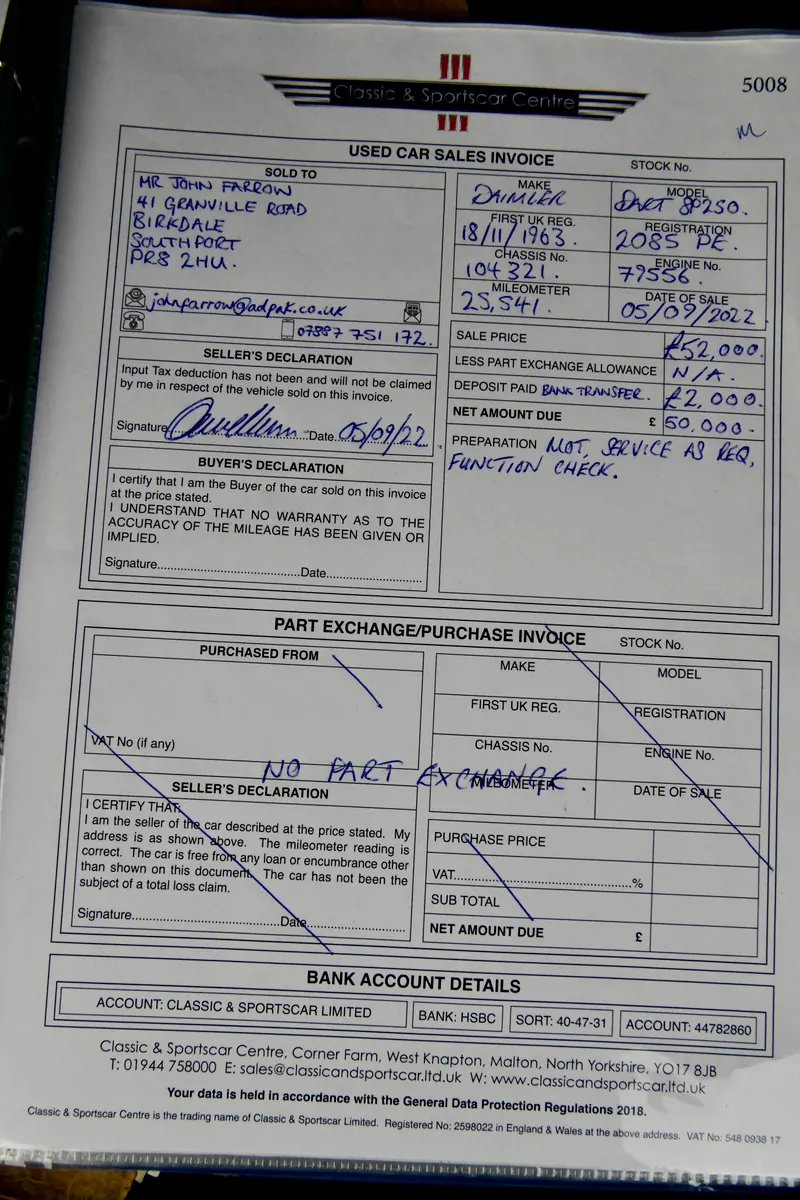 Classic & Sportscar Centre
5008
USED CAR SALES INVOICE
STOCK No.
SOLD TO
MR JOHN FARROW
41 GRANVILLE ROAD
BIRKDALE
SOUTHPORT
PR8 2HU.
johnfarrow@adpak.co.uk
07887 751 172.
MAKE
DAIMLER
MODEL
DART SP250.
FIRST UK REG.
18/11/1963.
REGISTRATION
2085 PE.
CHASSIS No.
104321.
ENGINE No.
79556.
MILEOMETER
25,541.
DATE OF SALE
05/09/2022
SELLER'S DECLARATION
Input Tax deduction has not been and will not be claimed
by me in respect of the vehicle sold on this invoice.
Signature Date 05/09/22.
SALE PRICE £52,000.
LESS PART EXCHANGE ALLOWANCE N/A.
DEPOSIT PAID BANK TRANSFER. £2,000.
NET AMOUNT DUE £ 50,000.
PREPARATION MOT, SERVICE AS REQ,
FUNCTION CHECK.
BUYER'S DECLARATION
I certify that I am the Buyer of the car sold on this invoice
at the price stated.
I UNDERSTAND THAT NO WARRANTY AS TO THE
ACCURACY OF THE MILEAGE HAS BEEN GIVEN OR
IMPLIED.
Signature........................................Date............................
PART EXCHANGE/PURCHASE INVOICE
STOCK No.
PURCHASED FROM
VAT No (if any)
MAKE
MODEL
FIRST UK REG.
REGISTRATION
CHASSIS No.
ENGINE No.
MILEOMETER
DATE OF SALE
NO PART EXCHANGE.
SELLER'S DECLARATION
I CERTIFY THAT:
I am the seller of the car described at the price stated. My
address is as shown above. The mileometer reading is
correct. The car is free from any loan or encumbrance other
than shown on this document. The car has not been the
subject of a total loss claim.
Signature..........................................Date............................
PURCHASE PRICE
VAT..................................................%
SUB TOTAL
NET AMOUNT DUE £
BANK ACCOUNT DETAILS
ACCOUNT: CLASSIC & SPORTSCAR LIMITED
BANK: HSBC
SORT: 40-47-31
ACCOUNT: 44782860
Classic & Sportscar Centre, Corner Farm, West Knapton, Malton, North Yorkshire, YO17 8JB
T: 01944 758000 E: sales@classicandsportscar.ltd.uk W: www.classicandsportscar.ltd.uk
Your data is held in accordance with the General Data Protection Regulations 2018.
Classic & Sportscar Centre is the trading name of Classic & Sportscar Limited. Registered No: 2598022 in England & Wales at the above address. VAT No: 548 0938 17